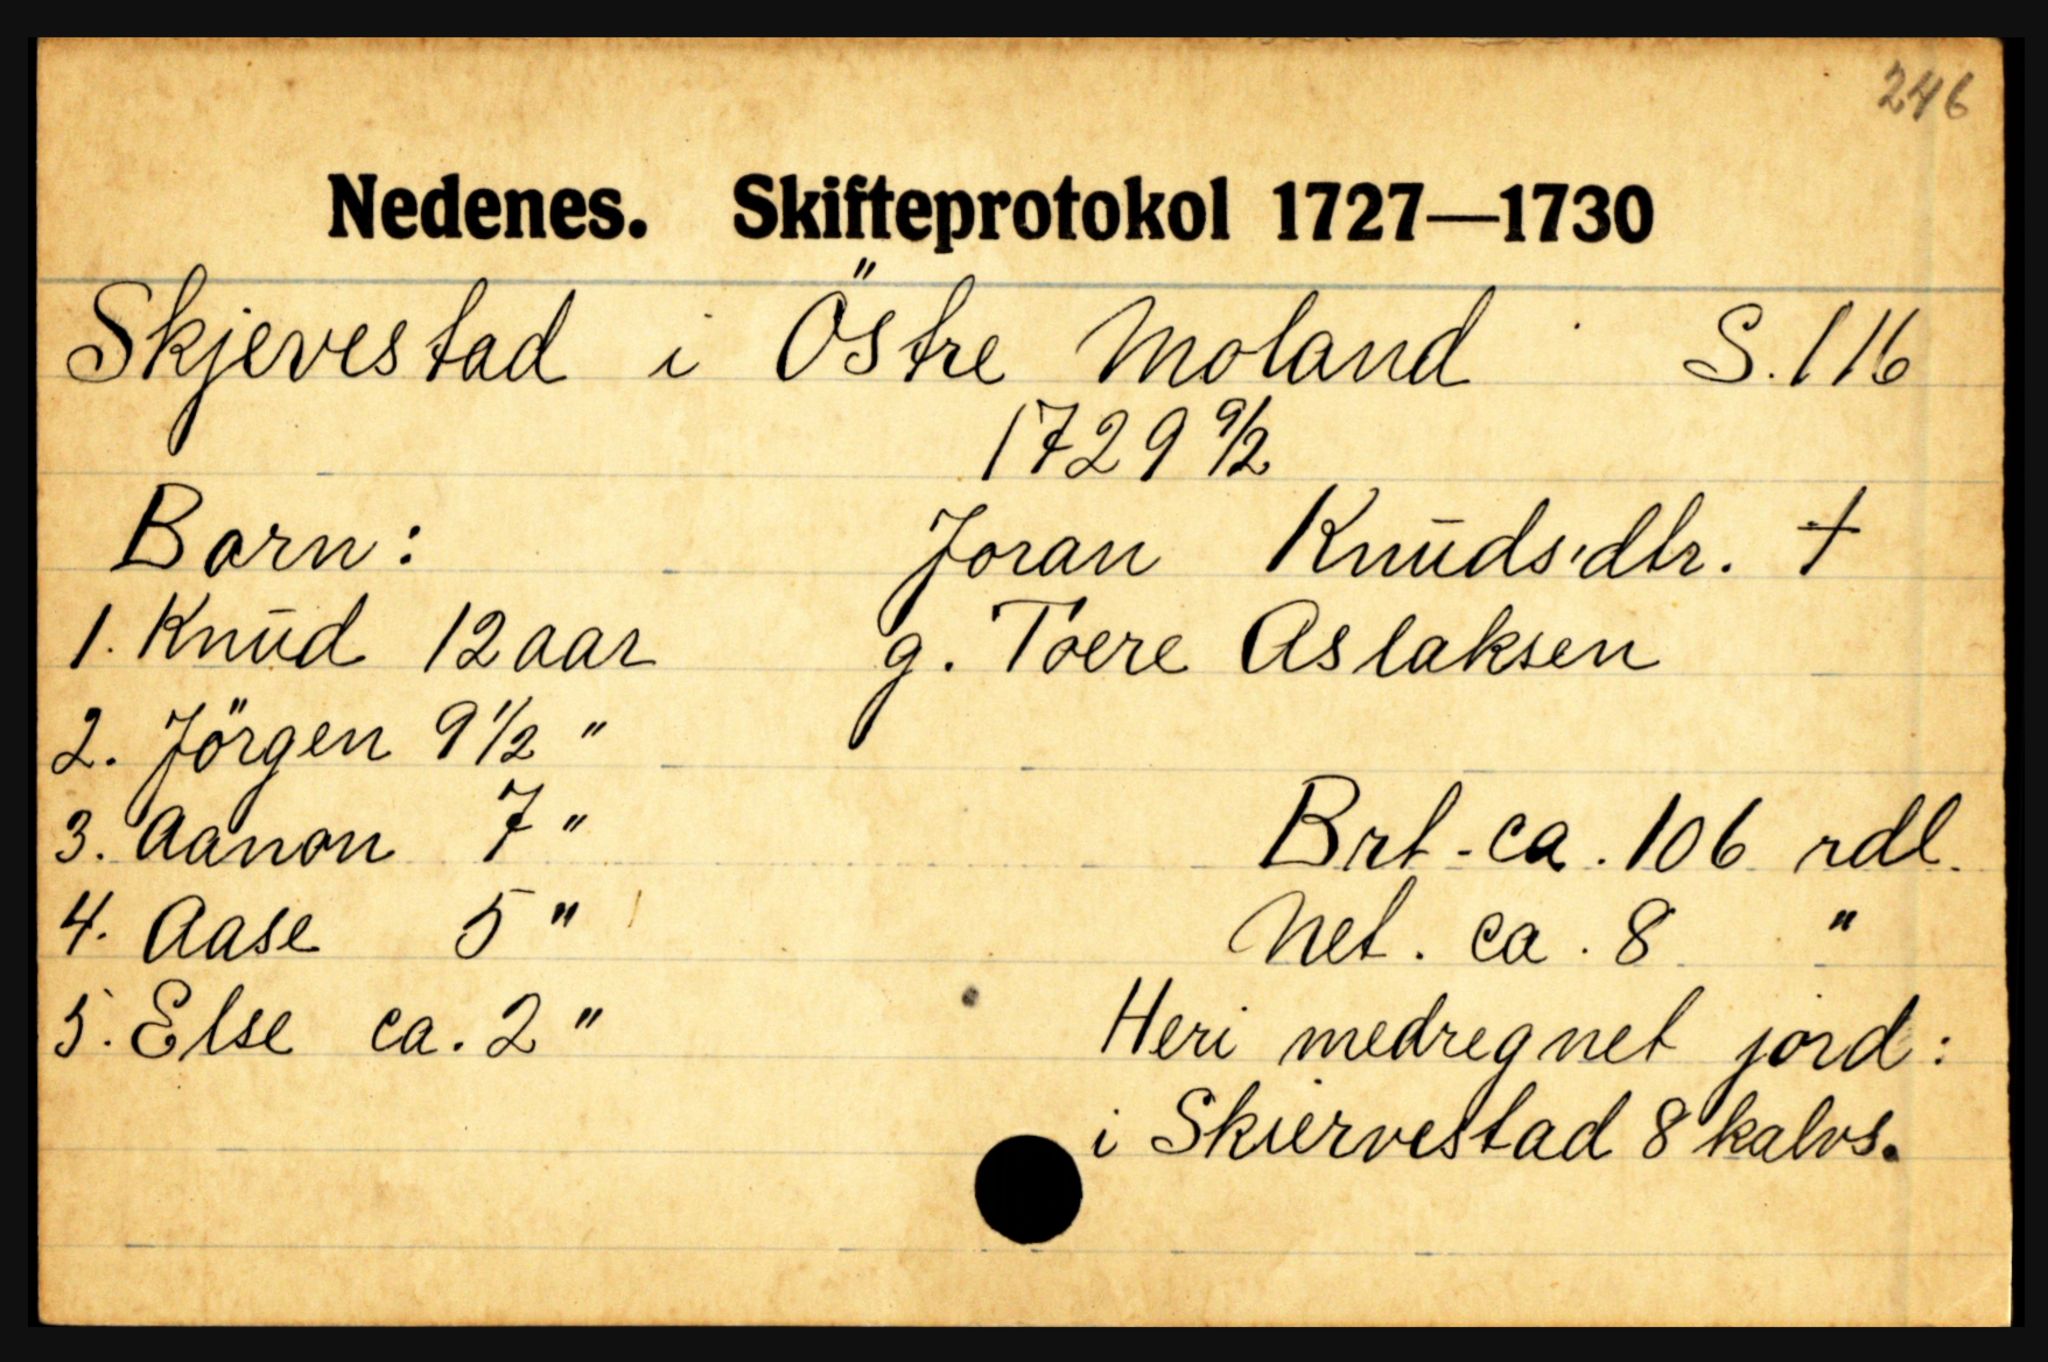 246
Nedenes. Skifteprotokol 1727—1730
Skjevestad i Östre Moland S. 116
1729 9/2
Barn: Joran Knudsdtr. †
1. Knud 12 aar g. Toere Aslaksen
2. Jörgen 9 1/2 "
3. Aanon 7 " Brt. ca. 106 rdl.
4. Aase 5 " Net. ca. 8 "
5. Else ca. 2 " Heri medregnet jord:
i Skiervestad 8 kalvs.